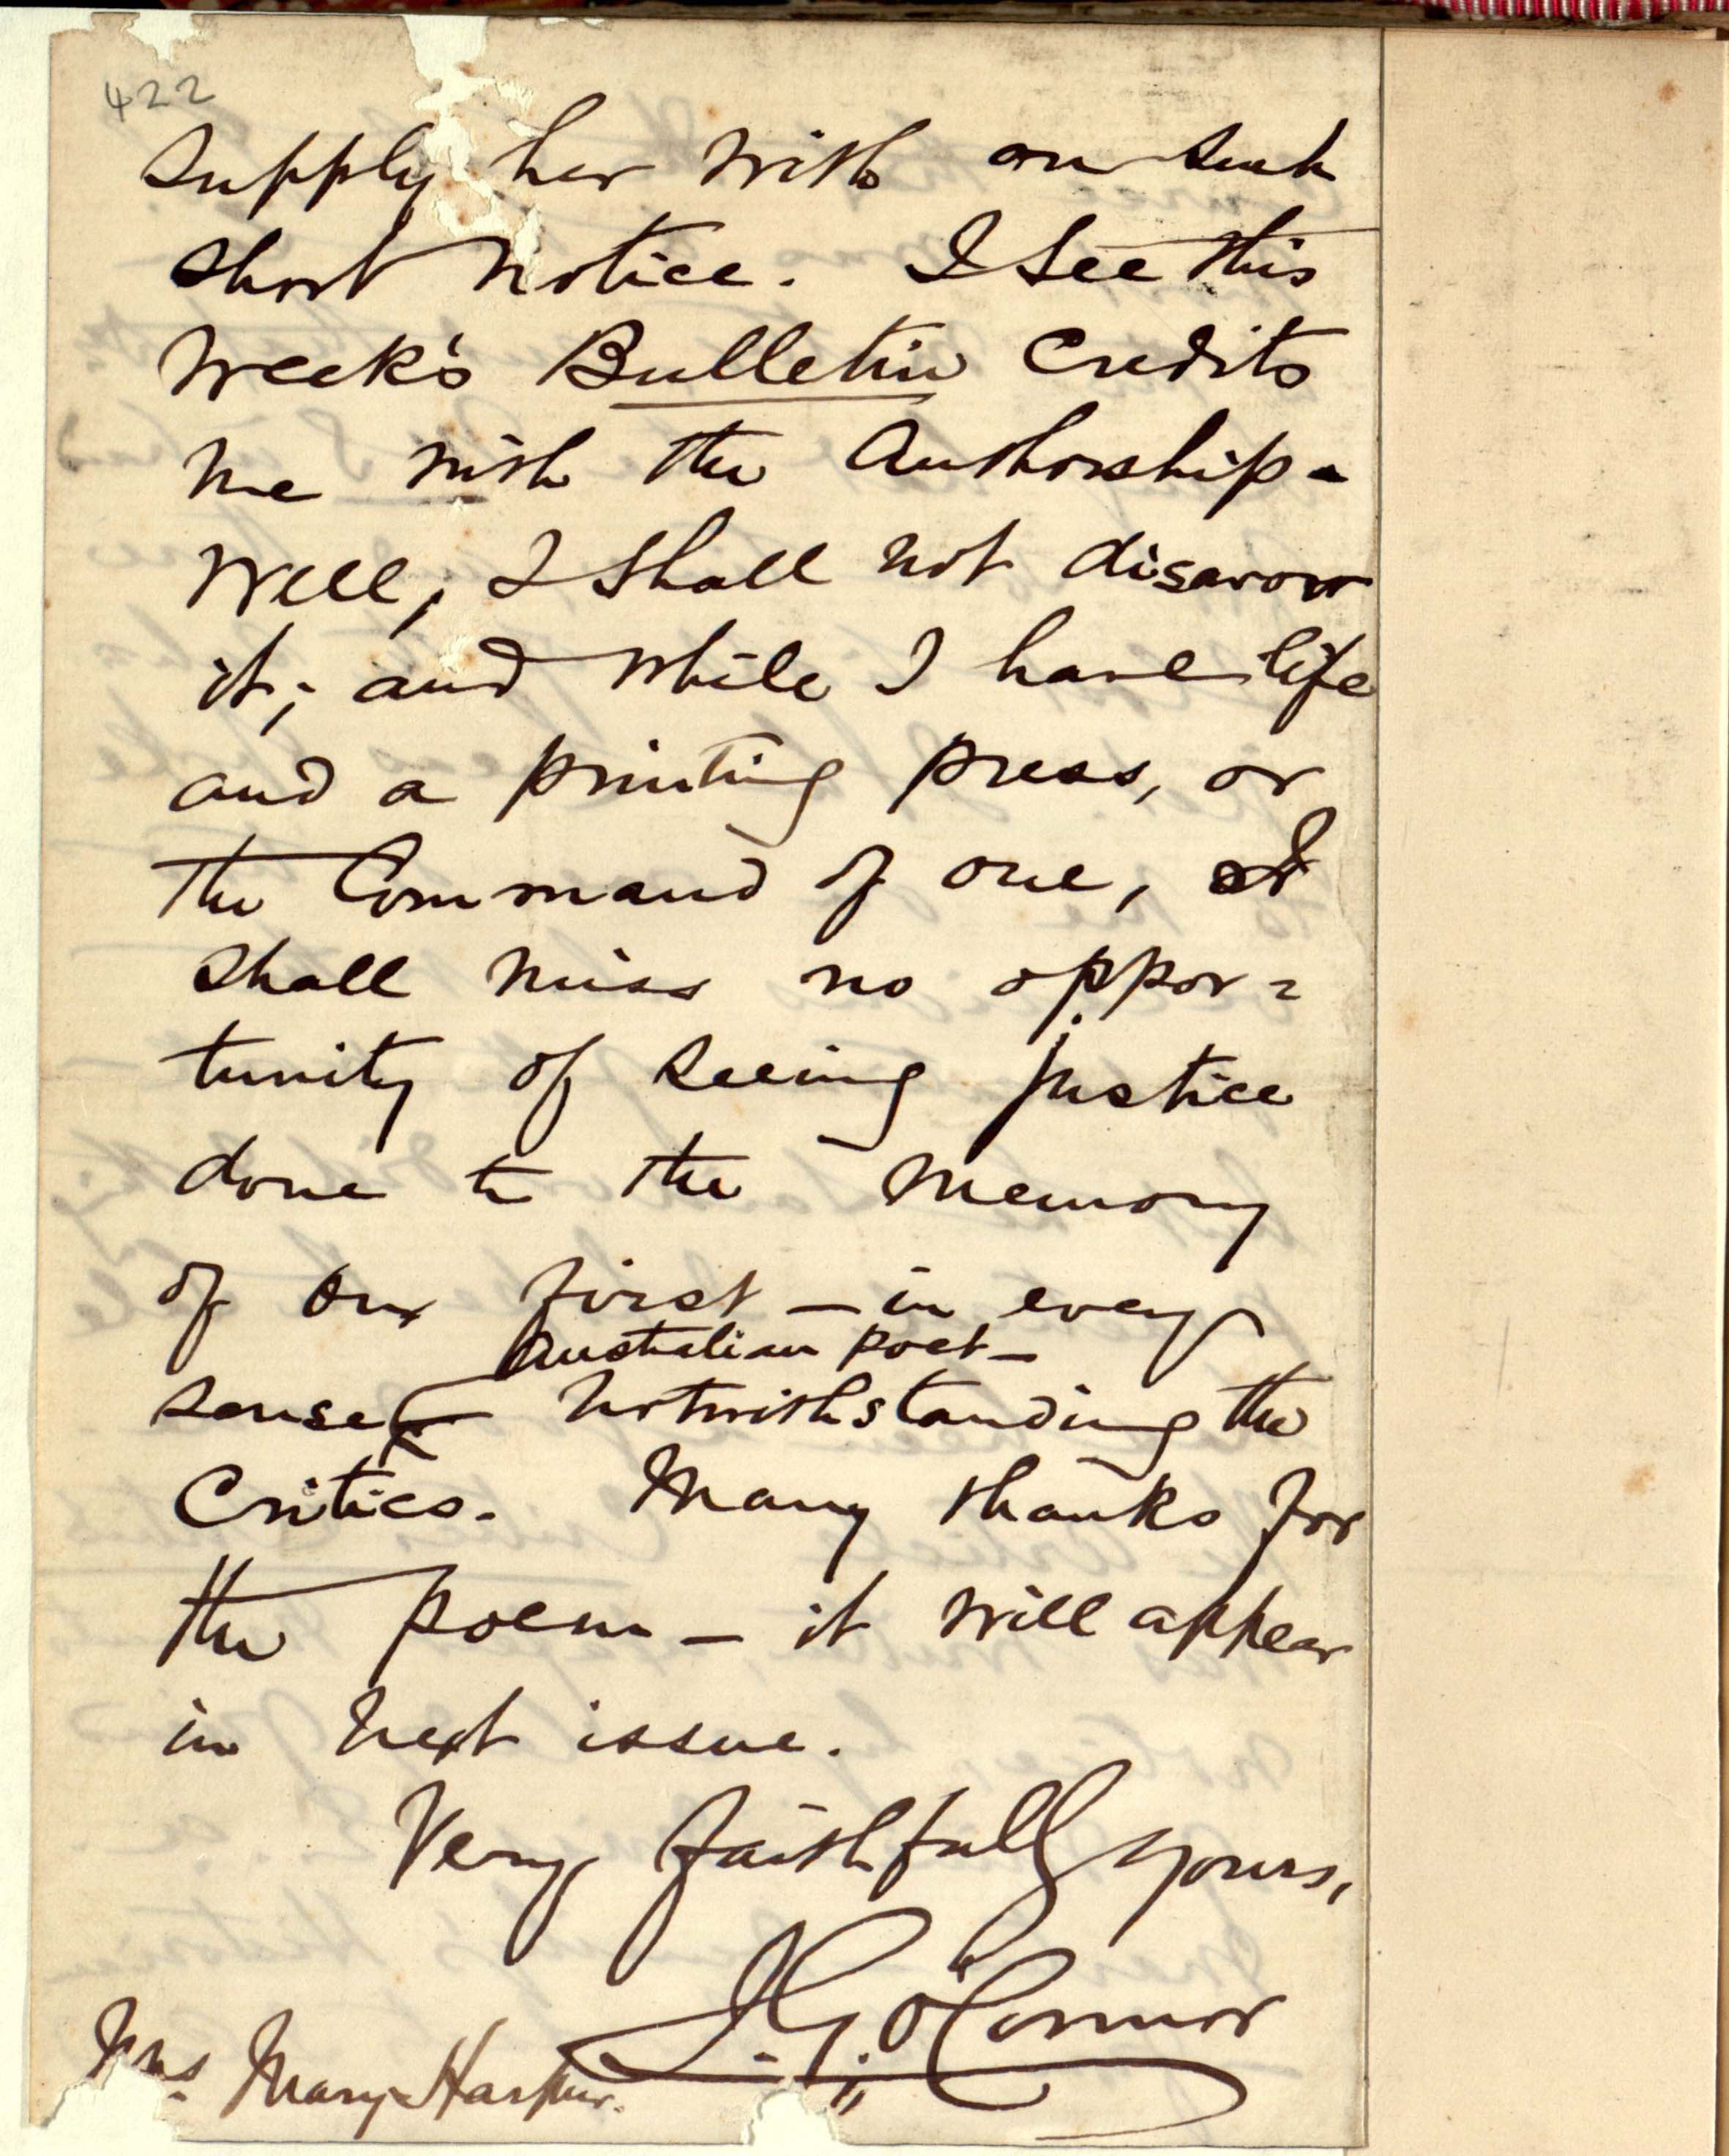 422
supply her with on such
short notice. I see this
week's Bulletin credits
me with the authorship.
Well, I shall not disavow
it; and while I have life
and a printing press, or
the Command of one, I
shall miss no oppor=
tunity of seeing justice
done to the memory
of our first – in every
Australian poet –
sense – notwithstanding the
Critics. Many thanks for
the poem – it will appear
in next issue.
Very faithfully yours,
J. G. O'Connor
Mrs Mary Harpur.